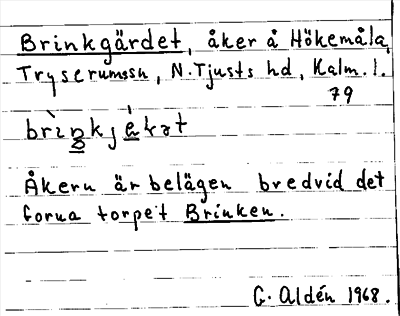 Brinkgärdet, åker å Hökemåla,
Tryserums sn, N. Tjusts hd, Kalm. l.
79
Åkern är belägen bredvid det
forna torpet Brinken.
G. Aldén 1968.